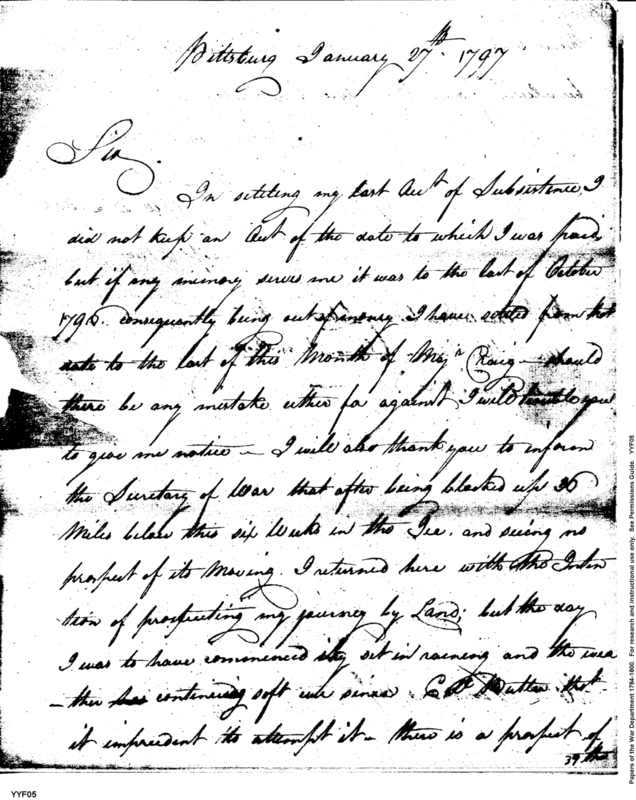 Pittsburg January 27th. 1797
Sir.
In settling my last Acct of Subsistence, I
did not keep an Acct of the date to which I was paid
but if my memory serves me it was to the last of October
1796. consequently being out of money I have settled from that
date to the last of this Month of Majr. Craig — should
there be any mistake either for or against I will trouble you
to give me notice — I will also thank you to inform
the Secretary of War that after being blocked up 36
Miles below this six Weeks in the Ice. and seeing no
prospect of its Moving. I returned here with the Inten
tion of prosecuting my journey by Land; but the day
I was to have commenced it set in raining and the wea
-ther continuing soft ever since Butler thot
it imprudent to attempt it — there is a prospect of
the
YYF05
Papers of the War Department 1784-1800. For research and instructional use only. See Permissions Guide. YYF05